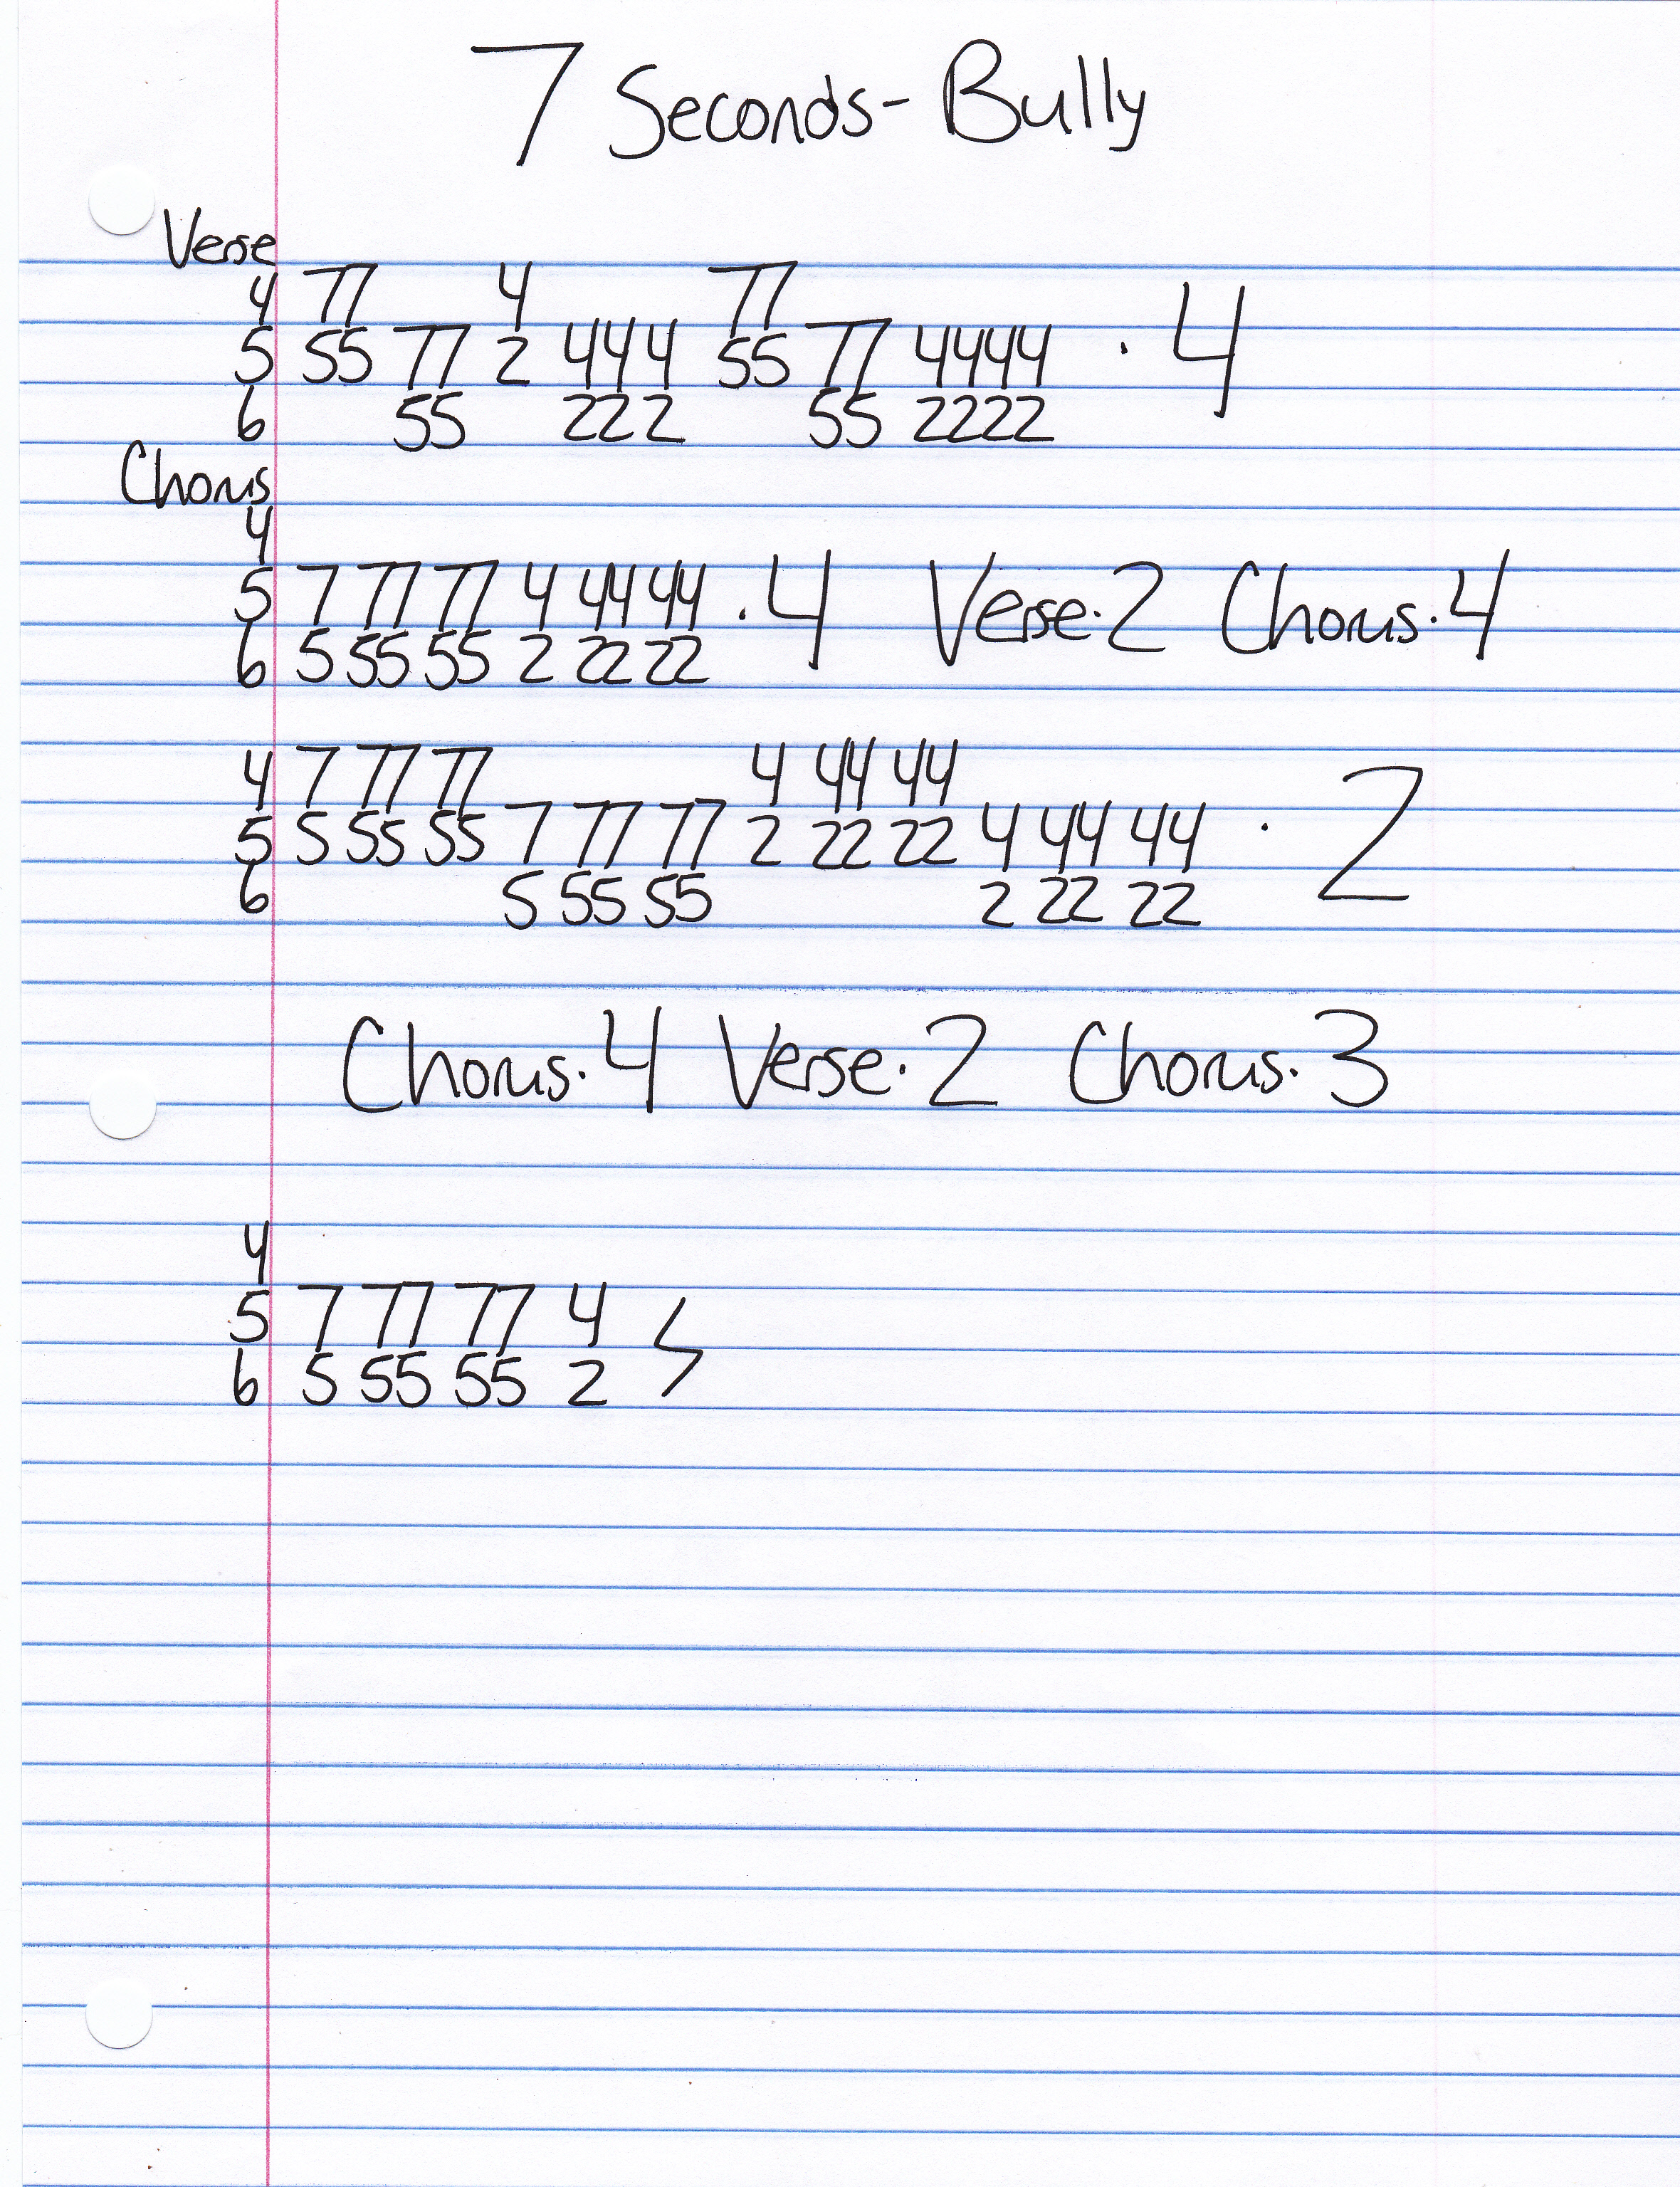 7 Seconds- Bully
Verse
4 77 4 77
5 55 77 2 444 55 77 4444 · 4
6 55 222 55 2222
Chorus
4
5 7 77 77 4 44 44 · 4 Verse·2 Chorus·4
6 5 55 55 2 22 22
4 7 77 77 4 44 44
5 5 55 55 7 77 77 2 22 22 4 44 44 · 2
6 5 55 55 2 22 22
Chorus·4 Verse·2 Chorus·3
4
5 7 77 77 4
6 5 55 55 2